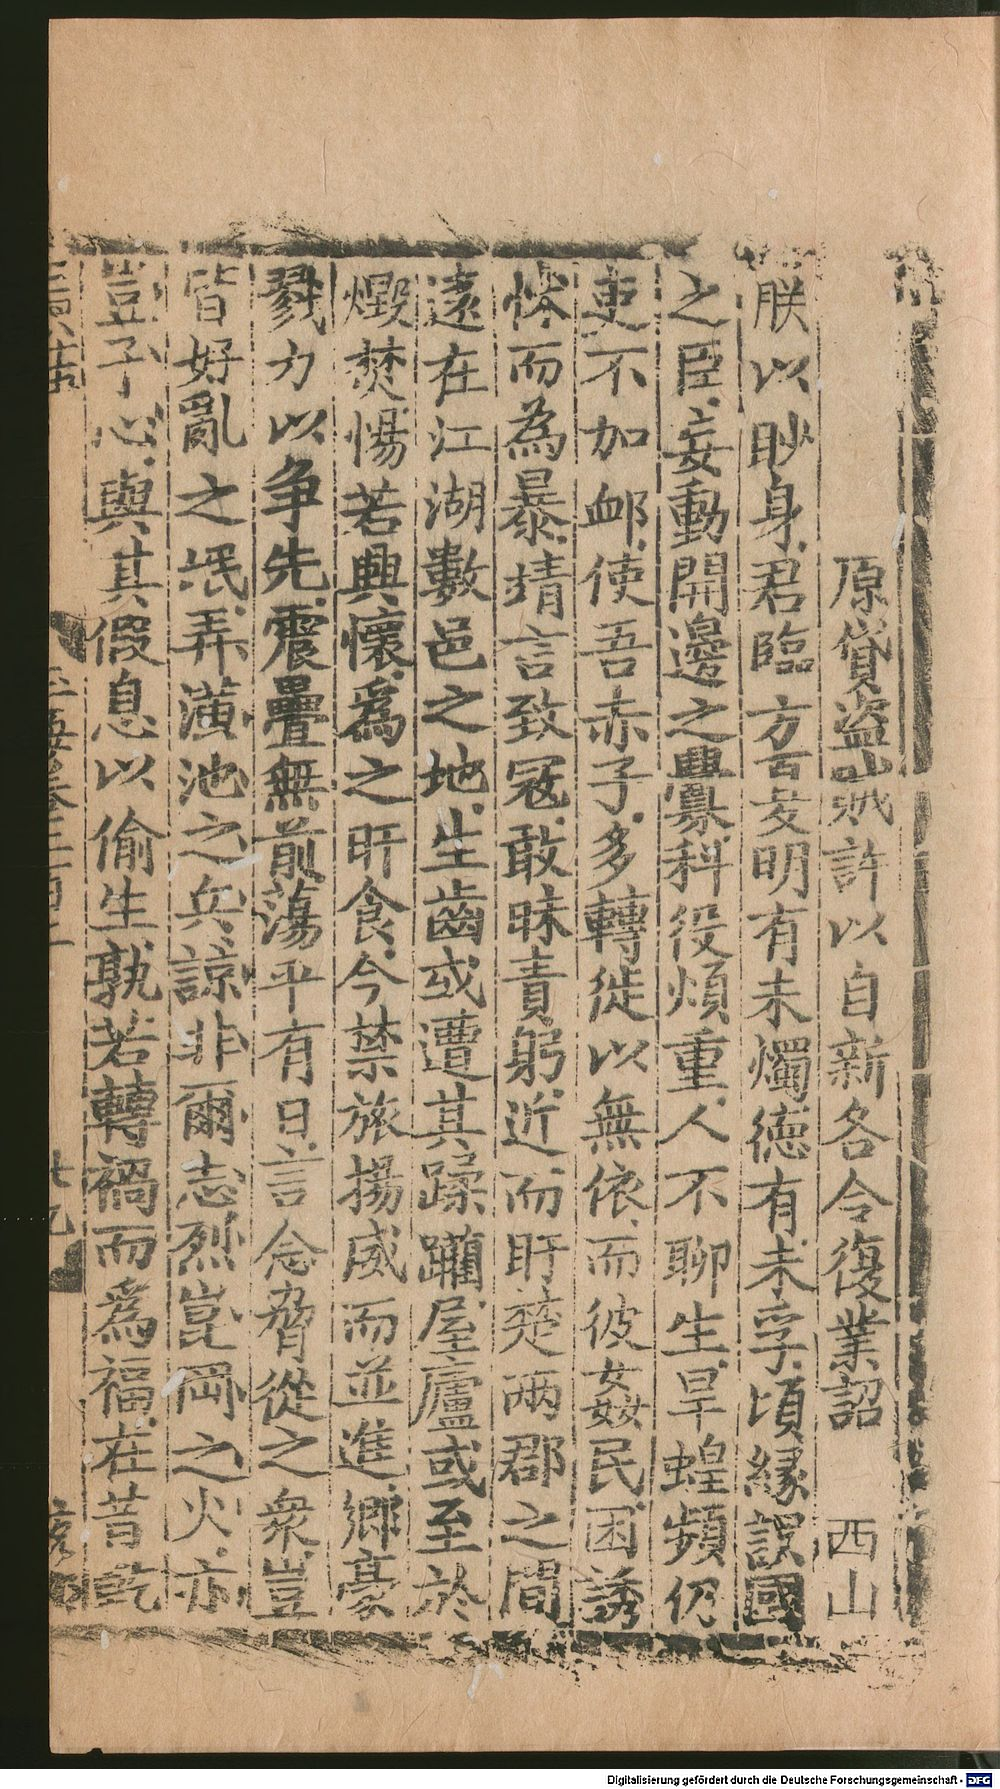 原貸盜賊許以自新各令復業詔 西山
朕以眇身君臨方夏明有未燭德有未孚頃縁誤國
之臣妄動開邊之釁科役煩重人不聊生旱蝗頻仍
吏不加衈使吾赤子多轉徙以無依而彼姦民因誘
怵而為暴靖言致冦敢昧責躬近而盱楚兩郡之間
遠在江湖數邑之地生齒或遭其蹂躪屋廬或至於
燬焚惕若興懷爲之旰食今禁旅揚威而並進鄉豪
戮力以争先震疊無前蕩平有日言念脅從之衆豈
皆好亂之氓弄潢池之兵諒非爾志烈崑岡之火亦
豈予心與其假息以偷生孰若轉禍而爲福在昔乾
Digitalisierung gefördert durch die Deutsche Forschungsgemeinschaft - DFG